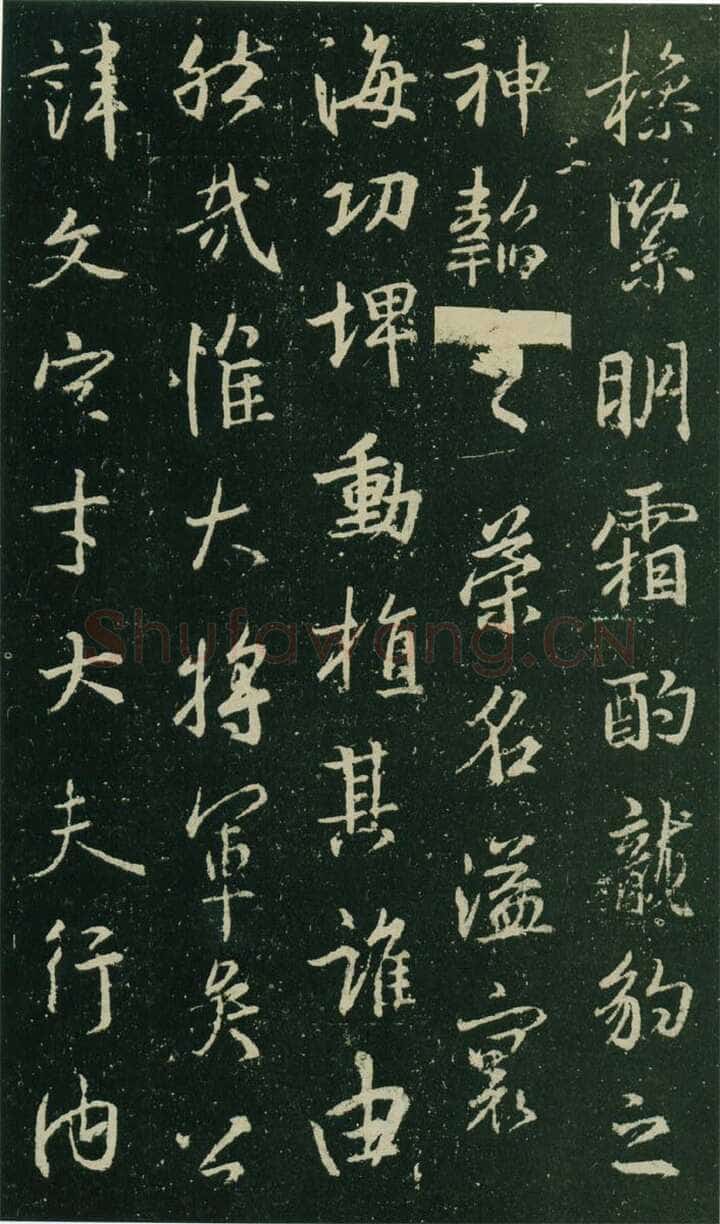 操緊明霜酌龍豹之
神韜之榮名溢寰
海功埤動植其誰由
然哉惟大將軍矣公
諱文字才大夫行內
Shufawang.CN